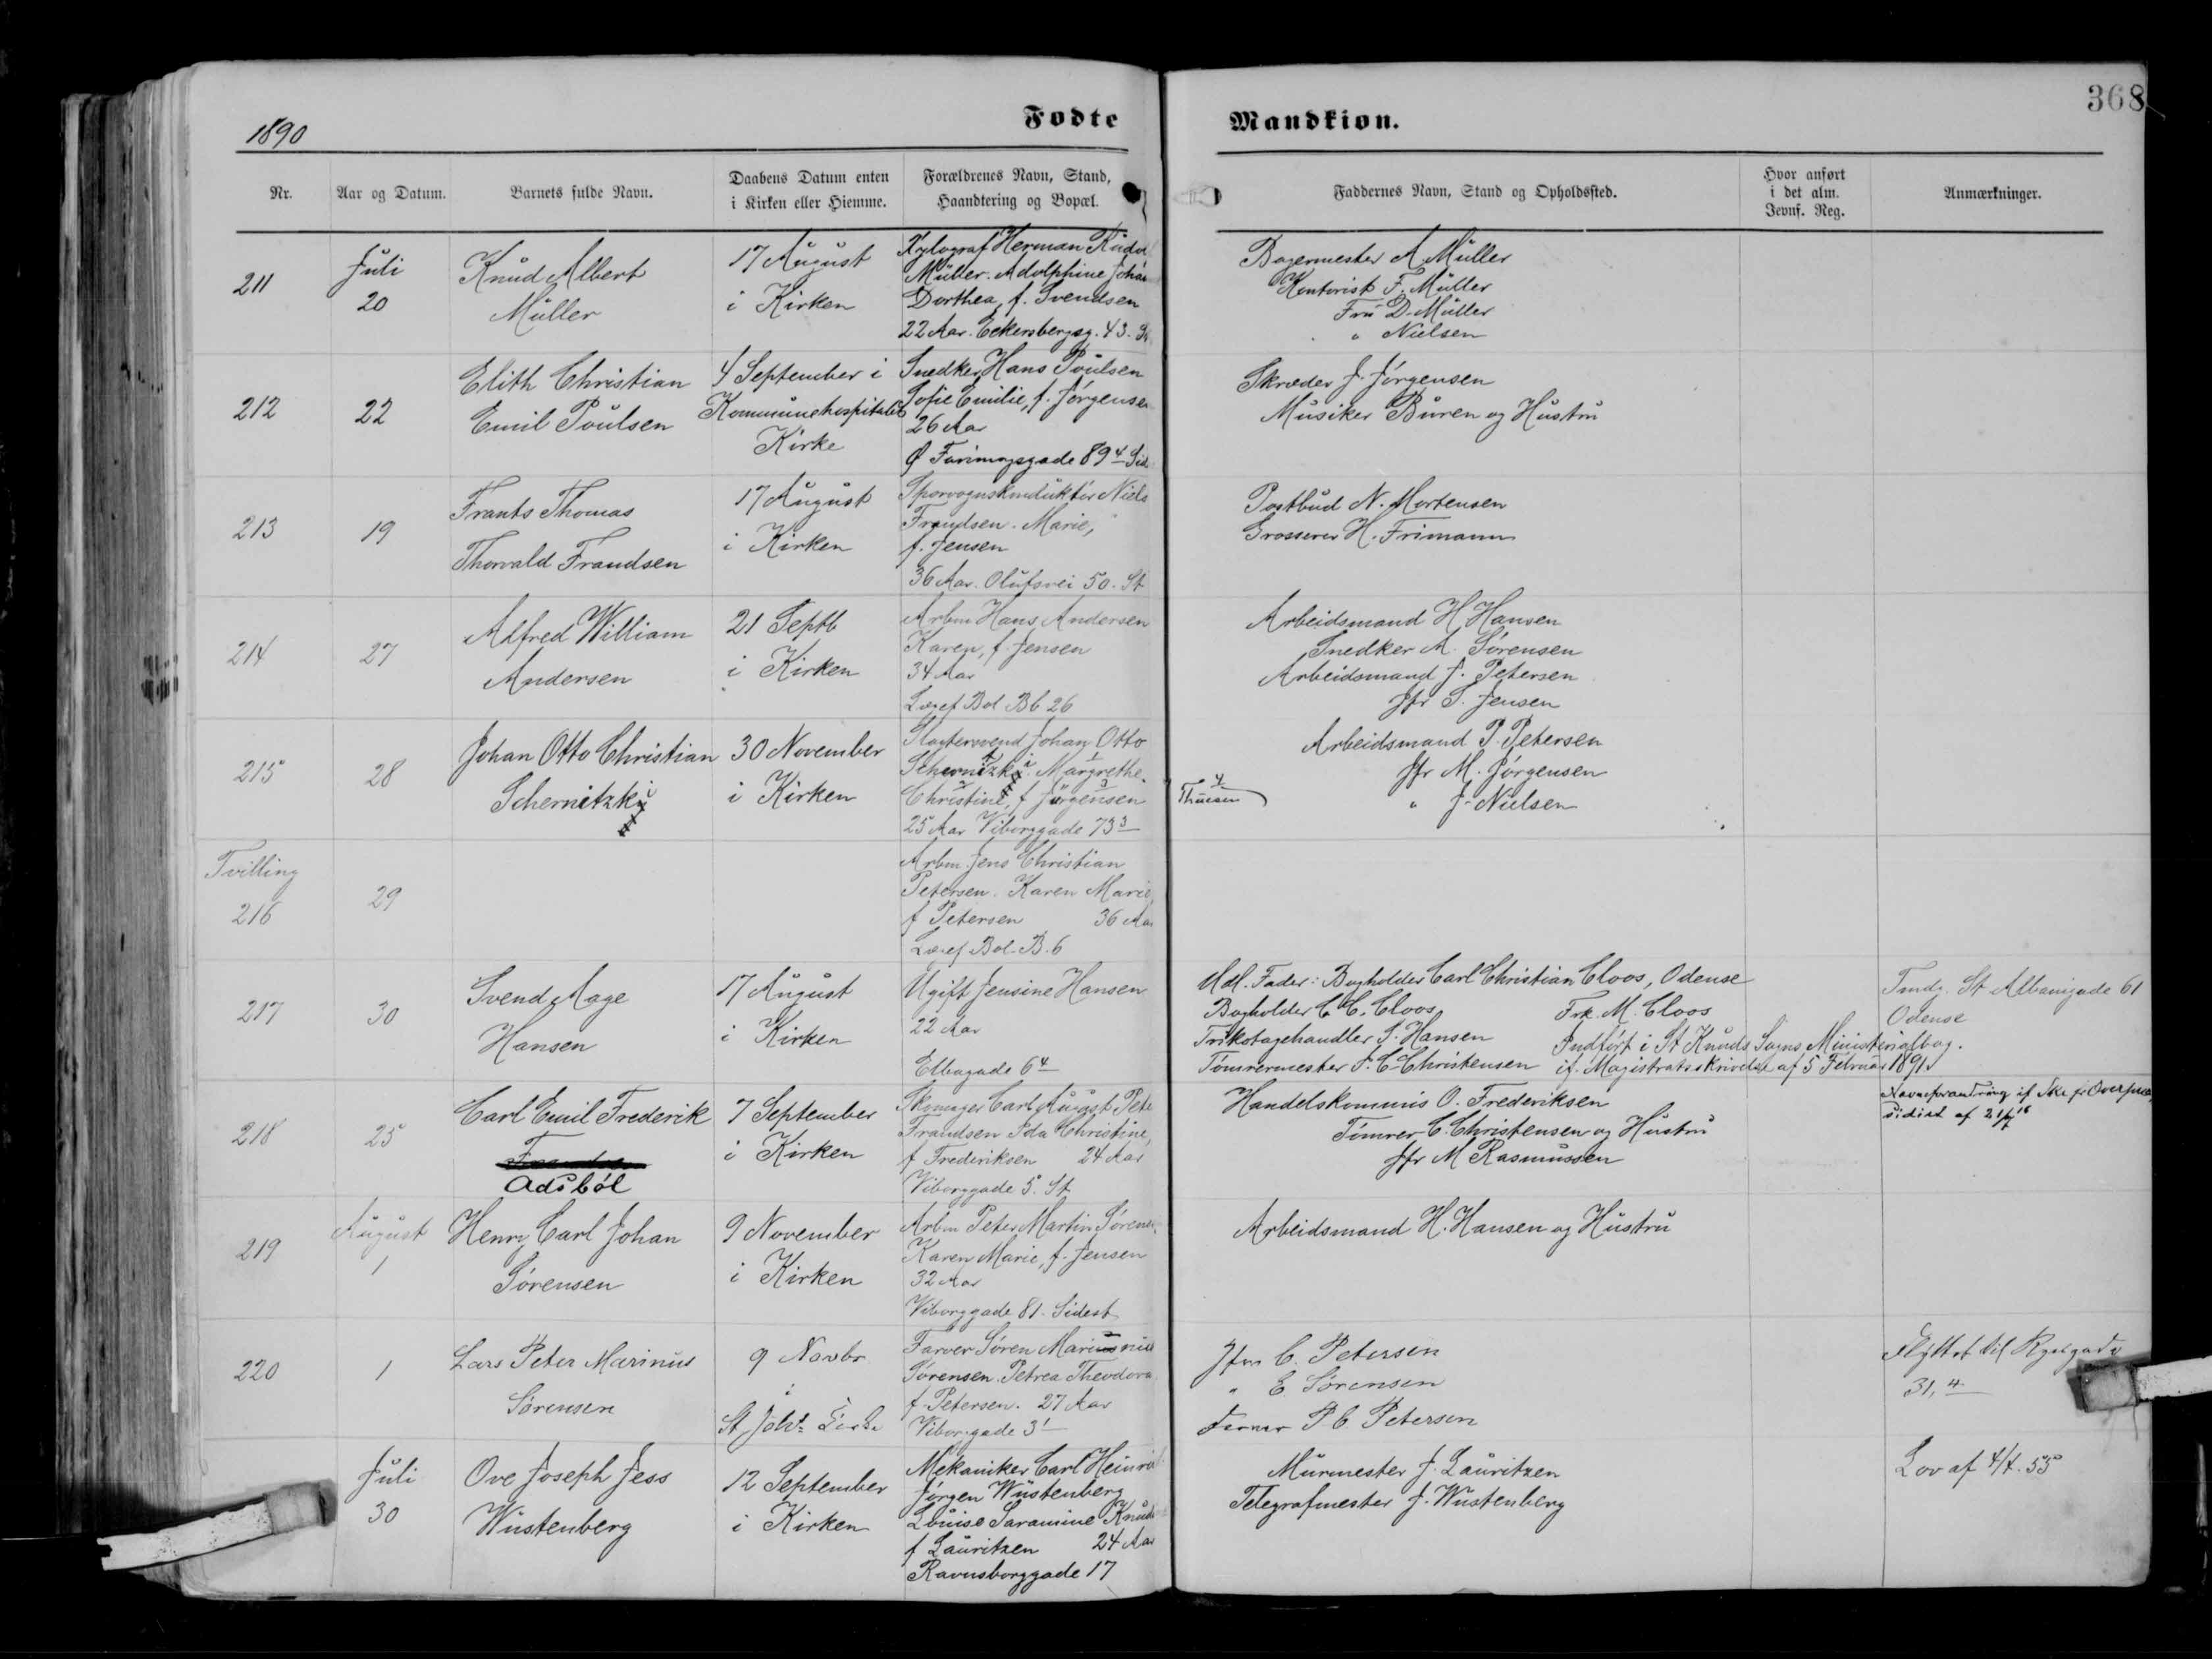 368
1890
Fødte
Mandkiøn.
Nr.
Aar og Datum.
Barnets fulde Navn.
Daabens Datum enten
i Kirken eller Hiemme.
Forældrenes Navn, Stand,
Haandtering og Bopæl.
Faddernes Navn, Stand og Opholdssted.
Hvor anført
i det alm.
Jevnf. Reg.
Anmærkninger.
211
Juli
20
Knud Albert
Müller
17 August
i Kirken
Xylograf Herman Rudol
Müller. Adolphine Johan
Dorthea, f. Svendsen
22 Aar. Eckersbergsg. 43. St
Bagermester A Müller
Kontorist F. Müller
Fru D. Müller
" Nielsen
212
22
Elith Christian
Emil Poulsen
4 September i
Kommunehospitalets
Kirke
Snedker Hans Poulsen
Sofie Emilie, f. Jørgensen
26 Aar
Ø Farimagsgade 89 4 Sid
Skræder J. Jørgensen
Musiker Buren og Hustru
213
19
Frants Thomas
Thorvald Frandsen
17 August
i Kirken
Sporvognskonduktør Niels
Frandsen. Marie,
f. Jensen
36 Aar. Olufsvei 50. St
Postbud N. Mortensen
Grosserer H. Frimann
214
27
Alfred William
Andersen
21 Septb
i Kirken
Arbm Hans Andersen
Karen, f. Jensen
34 Aar
Lægef Bol B6 26
Arbeidsmand H Hansen
Snedker A. Sørensen
Arbeidsmand J. Petersen
Jfr S. Jensen
215
28
Johan Otto Christian
Schernitzki
30 November
i Kirken
Slagtersvend Johan Otto
Schernitzki. Margrethe
Christine, f Jørgensen
25 Aar Viborggade 73 3
4
Thuesen
Arbeidsmand P. Petersen
Jfr M. Jørgensen
" J. Nielsen
Tvilling
216
29
Arbm. Jens Christian
Petersen. Karen Marie,
f Petersen 36 Aar
Lægef Bol. B. 6
217
30
Svend Aage
Hansen
17 August
i Kirken
Ugift Jensine Hansen
22 Aar
Elbagade 6 4
Udl. Fader: Bogholder Carl Christian Cloos, Odense
Bogholder C C. Cloos Frk. M. Cloos
Trikotagehandler S. Hansen Indført i St Knuds Sogns Ministerialbog.
Tømrermester J. C. Christensen if. Magistratsskrivelse af 5 Februar 1891
Tmdg. St Albanigade 61
Odense
218
25
Carl Emil Frederik
Frandsen
Adsbøl
7 September
i Kirken
Skomager Carl August Pete
Frandsen Ida Christine,
f Frederiksen 24 Aar
Viborggade 5. St
Handelskommis O. Frederiksen
Tømrer C. Christensen og Hustru
Jfr M Rasmussen
Navneforandring if
219
August
1
Henry Carl Johan
Sørensen
9 November
i Kirken
Arbm Peter Martin Sørens
Karen Marie, f. Jensen
32 Aar
Viborggade 81. Sidest
Arbeidsmand H. Hansen og Hustru
220
1
Lars Peter Marinus
Sørensen
9 Novbr
i
St. Johs Kirke
Farver Søren Marinus
Sørensen. Petrea Theodora
f. Petersen. 27 Aar
Viborggade 3 1
Jfr C. Petersen
" E. Sørensen
Farver P. C. Petersen
Flyttet til Ryesgade
31, 4
Juli
30
Ove Joseph Jess
Wüstenberg
12 September
i Kirken
Mekaniker Carl Heinri
Jørgen Wüstenberg
Louise Saramine Knud
f Lauritzen 24 Aar
Ravnsborggade 17
Murmester J. Lauritzen
Telegrafmester J. Wüstenberg
Lov af 4/4. 55